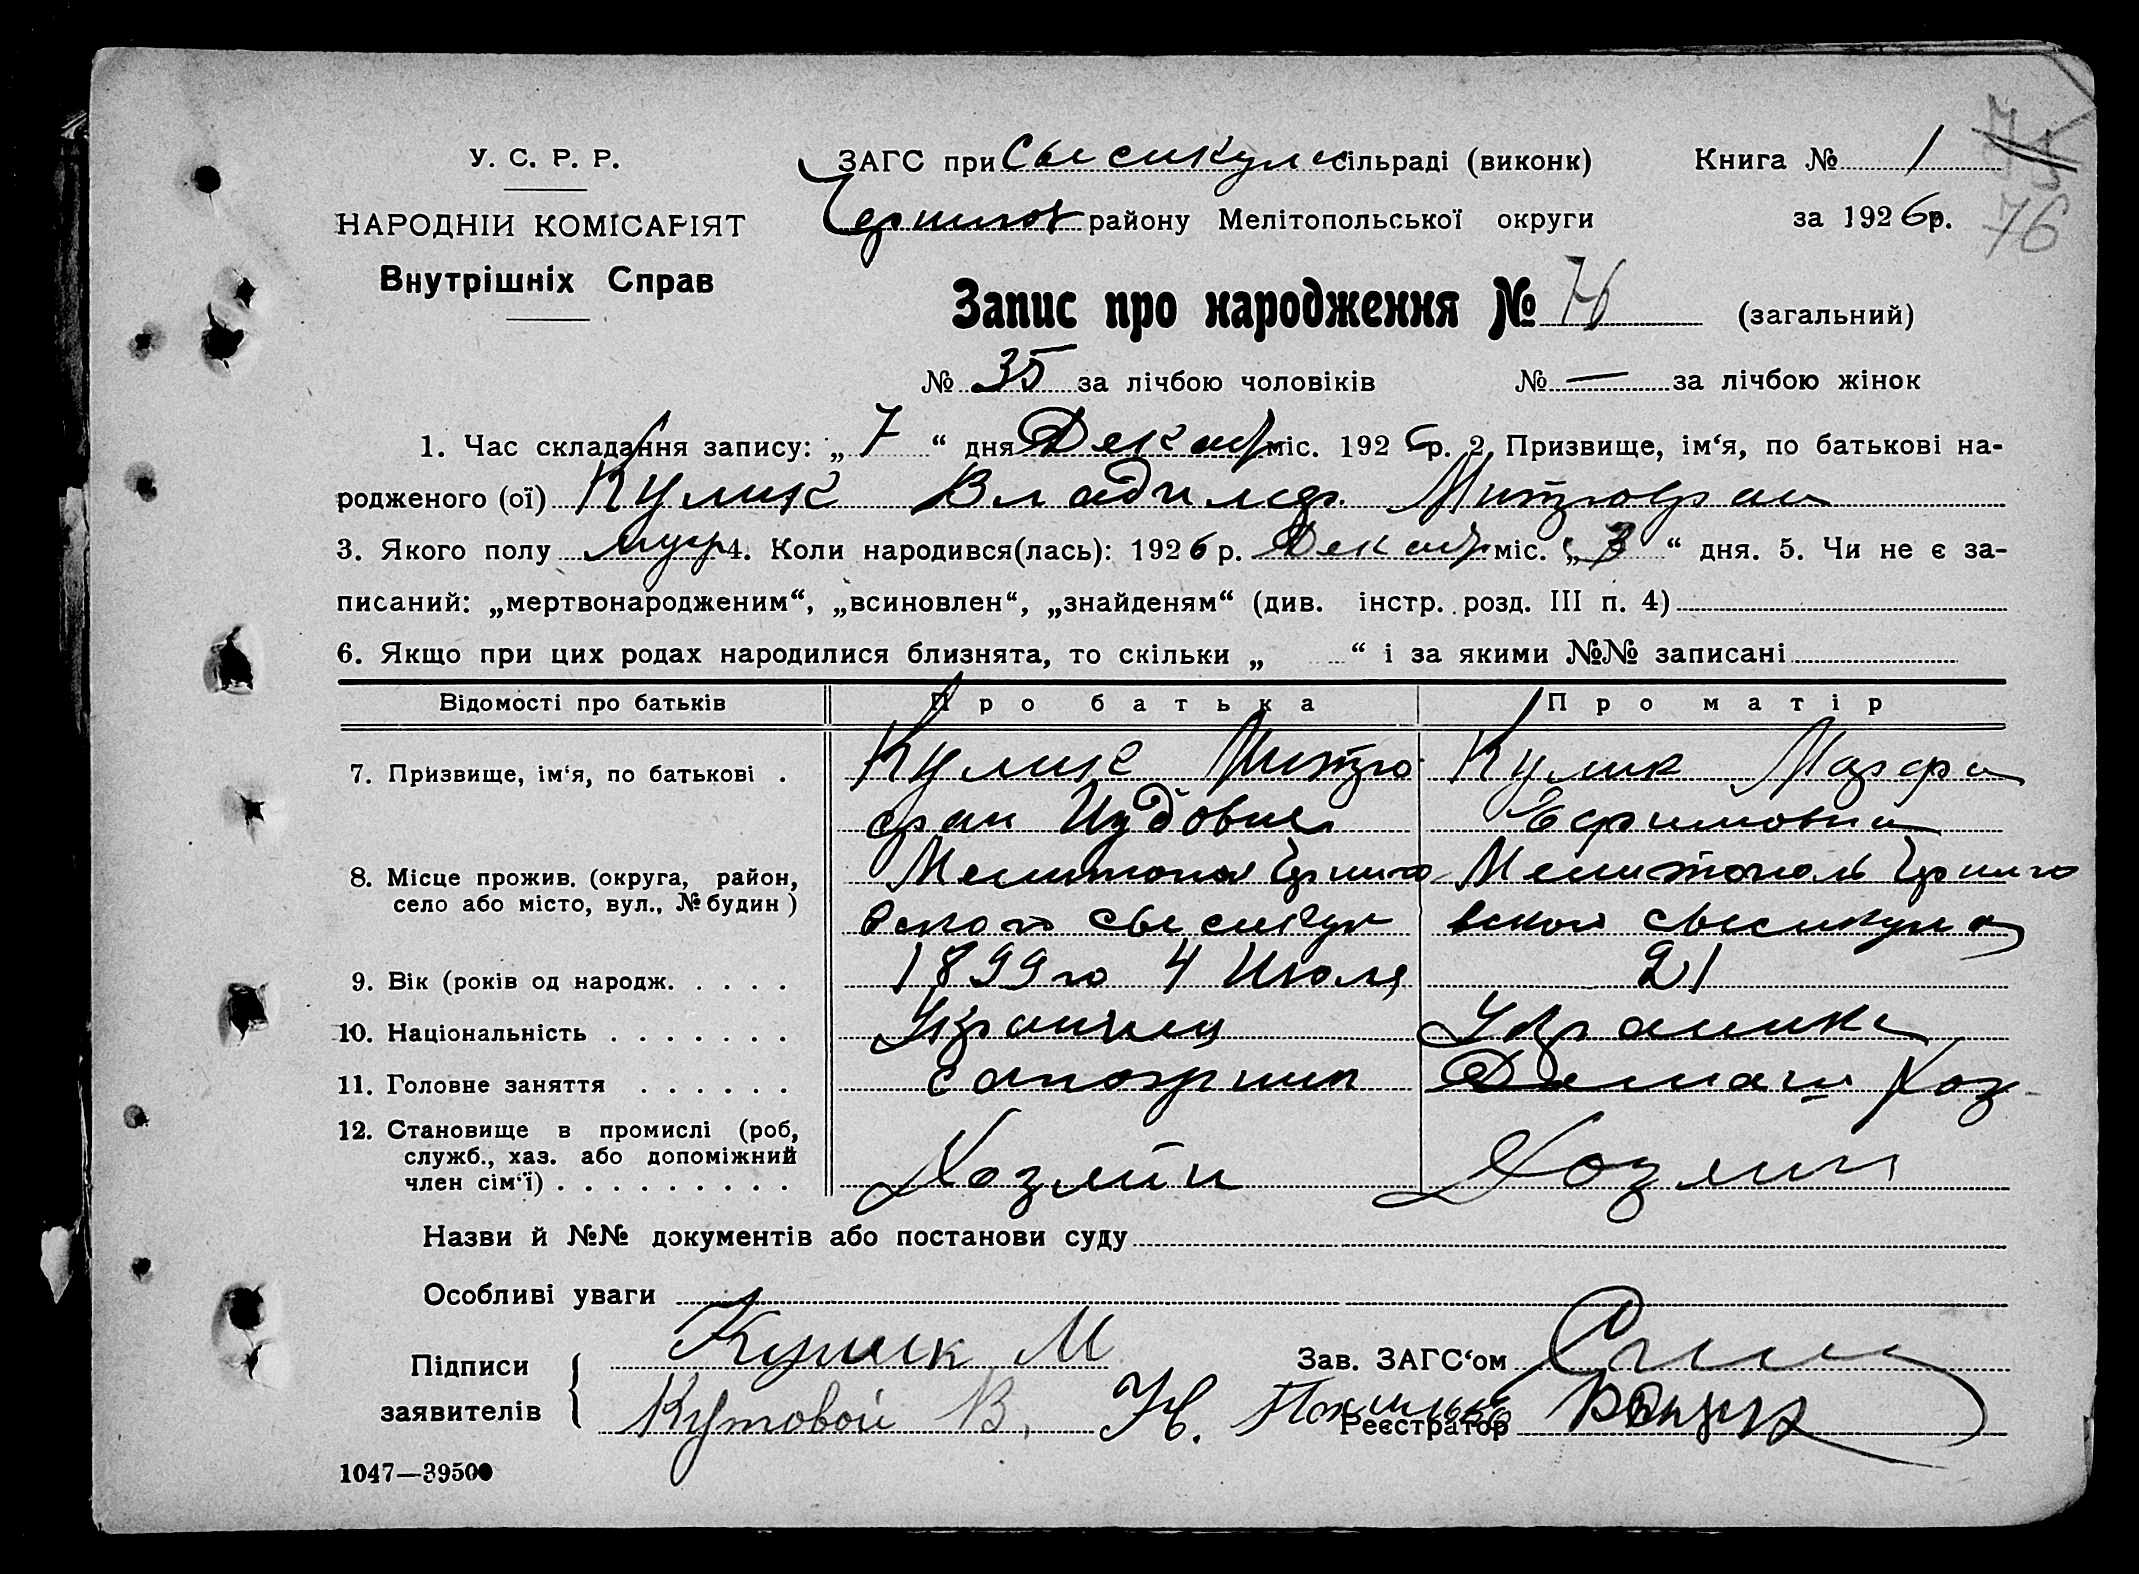 У. С. Р. Р.
НАРОДНІЙ КОМІСАРІЯТ
Внутрішніх Справ
ЗАГС при Сысикул сільраді (виконк) Книга № 1
Чернигов району Мелітопольської округи за 1926 р.
76
Запис про народження № (загальний)
№ 35 за лічбою чоловіків № — за лічбою жінок
1. Час складання запису: „ 7 “ дня Декаб міс. 1926 р. 2. Призвище, ім‘я, по батькові на-
родженого (ої) Кулик Владимер. Митрофан
3. Якого полу муж 4. Коли народився(лась): 1926 р. Декаб міс. „ 3 “ дня. 5. Чи не є за-
писаний: „мертвонародженим“, „всиновлен“, „знайденям“ (див. інстр. розд. III п. 4)
6. Якщо при цих родах народилися близнята, то скільки „ “ і за якими №№ записані
Відомости про батьків Про батька Про матір
7. Призвище, ім‘я, по батькові . Кулик Митро Кулик Марфа
фан Иудович Ефимовна
8. Місце прожив. (округа, район, Мелитопол Черниго Мелитополь Черниго
село або місто, вул., № будин) вского сысикул вской сысикул
9. Вік (років од народж. . . . . 1899 го 4 Июля 21
10. Національність . . . . . . . Украинец Украинка
11. Головне заняття . . . . . . сапожник Домаш Хоз
12. Становище в промислі (роб,
служб., хаз. або допоміжний
член сім‘ї) . . . . . . . . . Хозяин Хозяин
Назви й №№ документів або постанови суду
Особливі уваги
Підписи Кулик М Зав. ЗАГС‘ом
заявителів Кутовой В. Н. Реєстратор
1047—39500